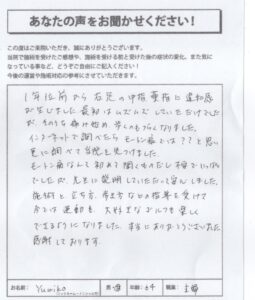 あなたの声をお聞かせください！
この度はご来院いただき、誠にありがとうございます。
当院で施術を受けたご感想や、施術を受ける前と受けた後の症状の変化、また気に
なっている事など、どうぞご自由にご記入ください！
今後の運営や施術対応の参考にさせていただきます。
1年位前から右足の中指、薬指に違和感
が生じました。最初はムズムズしていただけでした
が、そのうち痛み始め歩くのもつらくなりました。
インターネットで調べたらモートン病では？？と思い
更に調べて当院を見つけました。
モートン病なんて初めて聞くものだし不安でいっぱい
でしたが、先生に説明していただいて安心しました。
施術と立ち方、歩き方などの指導を受けて
今では運動も大好きなゴルフを楽しく
できるようになりました。本当にありがとうございました。
感謝しております。
お名前： Yumiko
男・女 年齢：64 職業：主婦